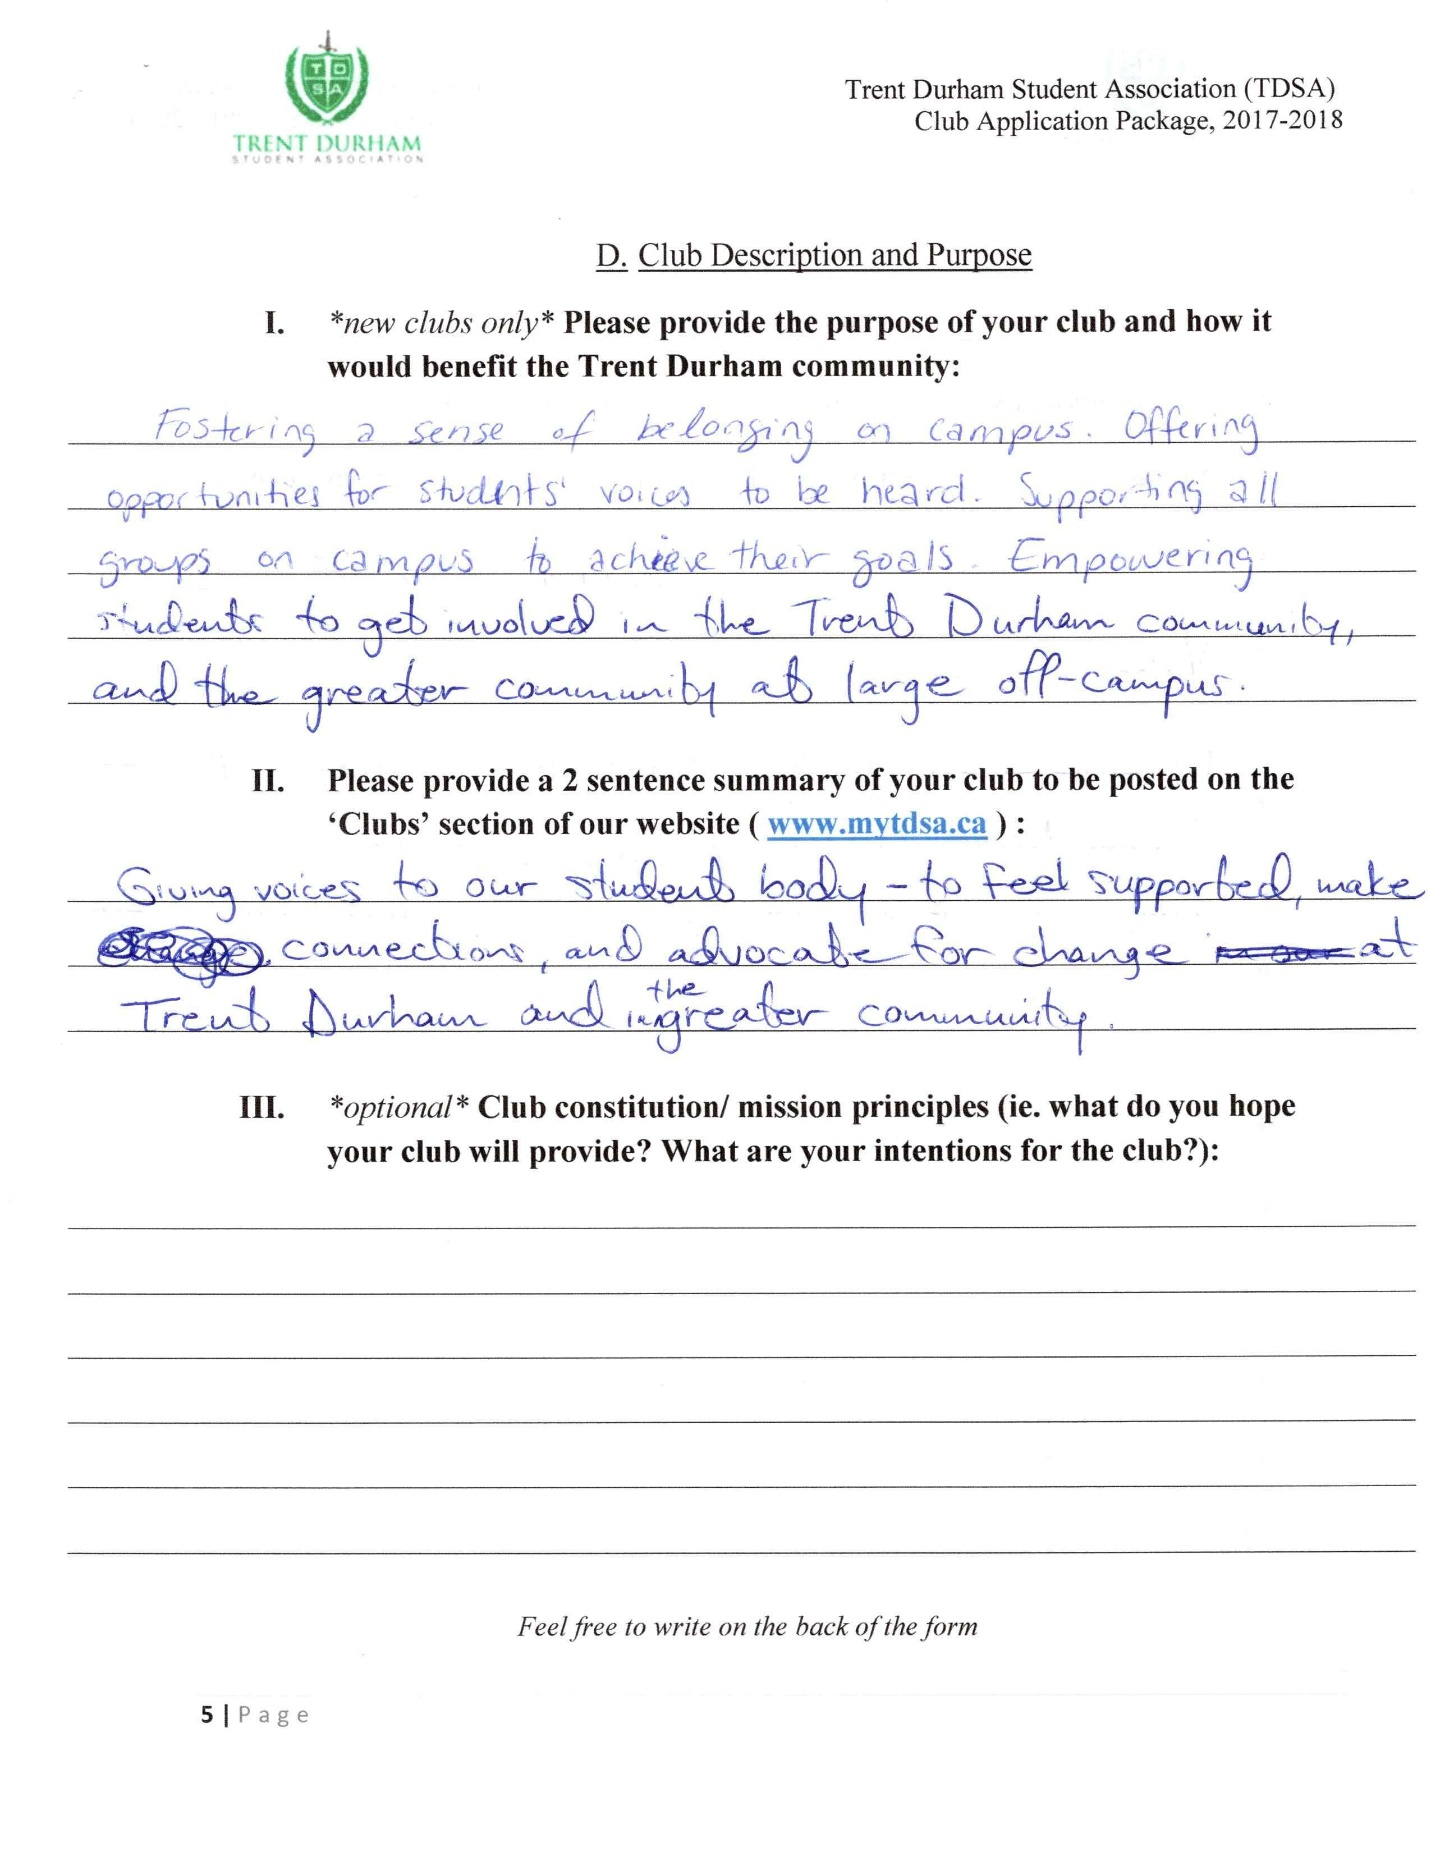 T D
S A
TRENT DURHAM
STUDENT ASSOCIATION
Trent Durham Student Association (TDSA)
Club Application Package, 2017-2018
D. Club Description and Purpose
I. *new clubs only* Please provide the purpose of your club and how it
would benefit the Trent Durham community:
Fostering a sense of belonging on campus. Offering
opportunities for students' voices to be heard. Supporting all
groups on campus to achieve their goals. Empowering
students to get involved in the Trent Durham community,
and the greater community at large off-campus.
II. Please provide a 2 sentence summary of your club to be posted on the
‘Clubs’ section of our website ( www.mytdsa.ca ) :
Giving voices to our student body - to feel supported, make
connections, and advocate for change at
Trent Durham and in the greater community.
III. *optional* Club constitution/ mission principles (ie. what do you hope
your club will provide? What are your intentions for the club?):
Feel free to write on the back of the form
5 | Page